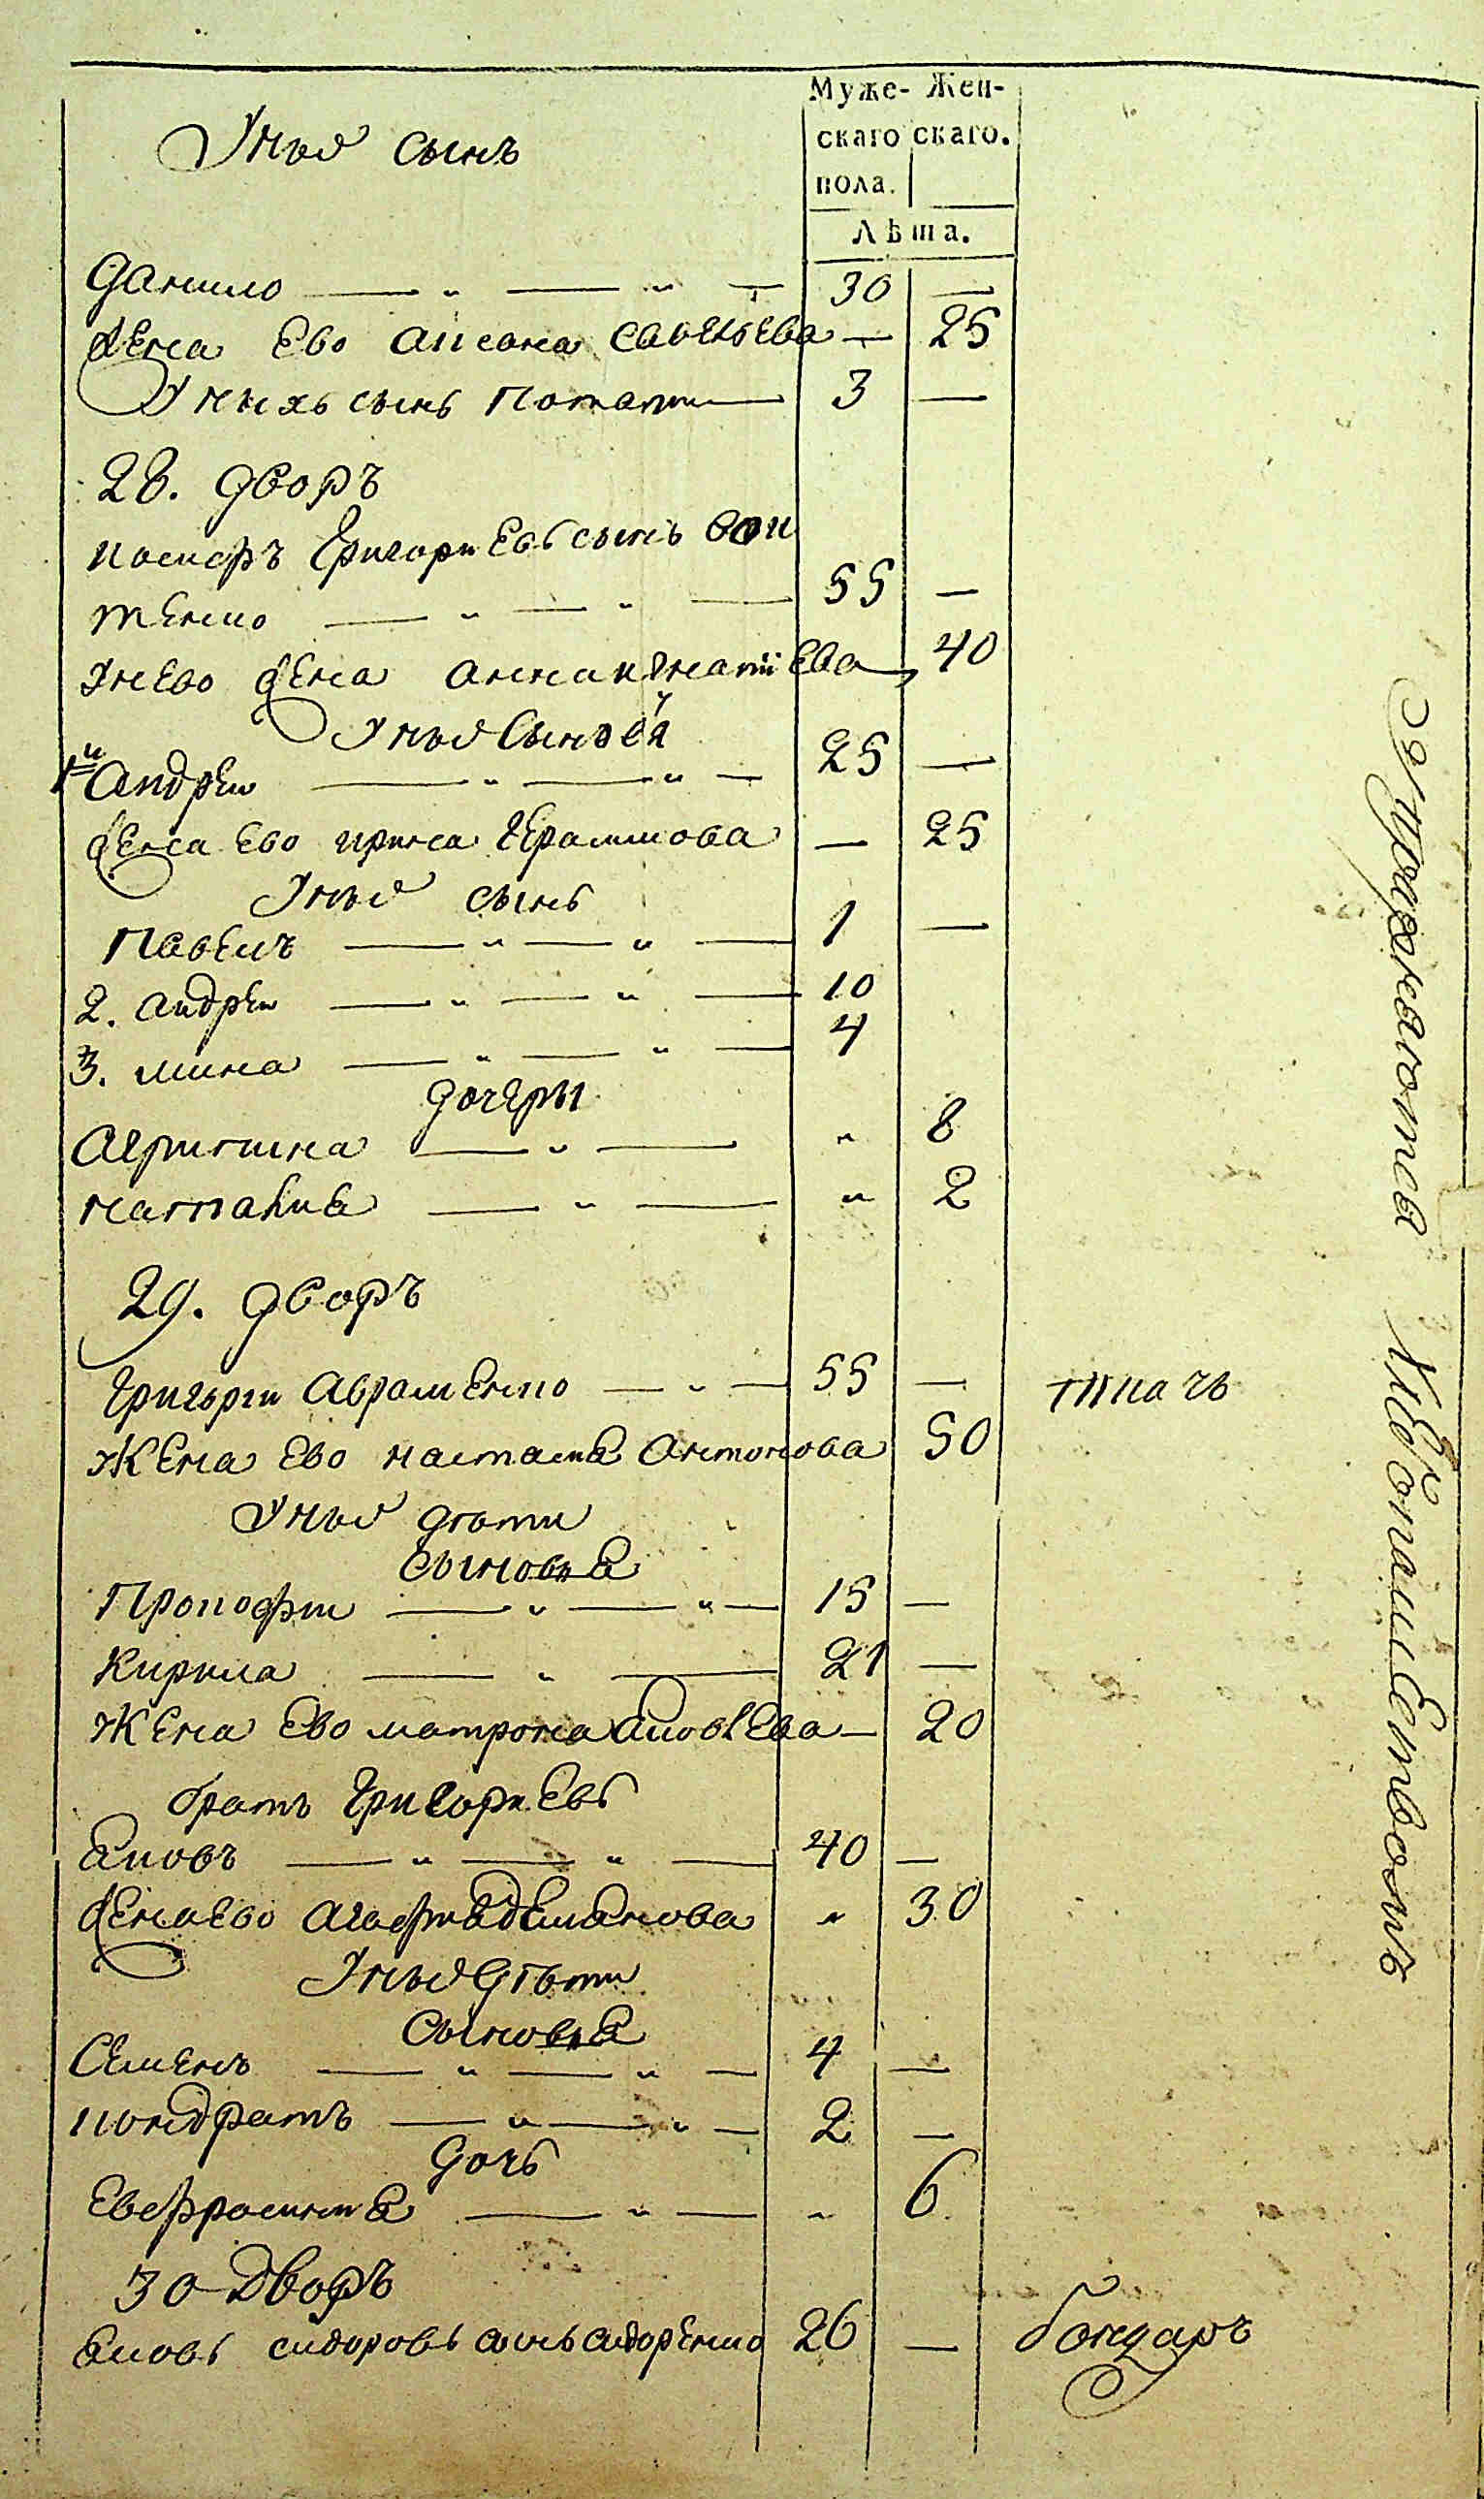 Муже- Жен-
скаго скаго.
пола.
Лѣта.
У него сынъ
Данило 30 —
Жена ево Савельева — 25
У нихъ сынъ Потапъ 3 —
28. дворъ
Никифоръ Григориевъ сынъ Вои
тенко 55 —
У нево жена Анна Игнатиева 40
У него сыновей
1й Андрей 25 —
Жена ево Ирина Герасимова — 25
У него сынъ
Павелъ 1 —
2. Андрей 10
3. Мина 4
Дочери
Агрипина " 8
Наталия " 2
29. дворъ
Григорги Авраменко 55 — ткачъ
Жена ево Настасия Антонова 50
У него дѣти
Сыновья
Прокофи 15 —
Кирила 21 —
Жена ево Матрона Яковлева — 20
братъ Григориевъ
Яковъ 40 —
Жена ево Агафия Демянова " 30
У него дѣти
Сыновья
Семенъ 4 —
Кондратъ 2 —
Дочь
Евфросиния " 6
30 Дворъ
Яковъ Сидоровъ сынъ Сидоренко 26 — бондаръ
Упражняются
Хлебопашеством